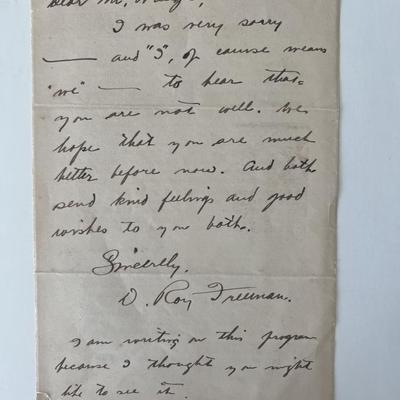 Dear Mr.
I was very sorry
— and "I", of cause means
"we" — to hear that
you are not well. We
hope that you are much
better before now. And both
send kind feelings and good
wishes to you both.
Sincerely,
D. Roy Freeman.
I am writing on this program
because I thought you might
like to see it.